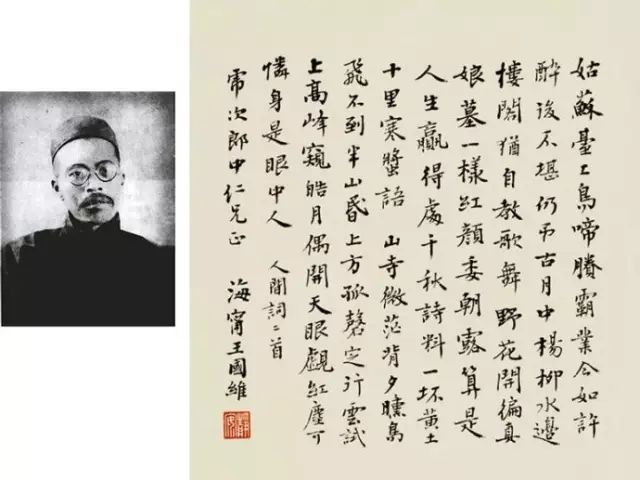 姑蘇臺上烏啼賸霸業今如許
醉後不堪仍弔古月中楊柳水邊
樓閣猶自教歌舞 野花開徧真
娘墓一樣紅顏委朝露算是
人生贏得處千秋詩料一抔黃土
十里寒螿語 山寺微茫背夕曛鳥
飛不到半山昏上方孤磬定行雲試
上高峰窺皓月偶開天眼覷紅塵可
憐身是眼中人 人間詞二首
次郎中仁兄正 海甯王國維